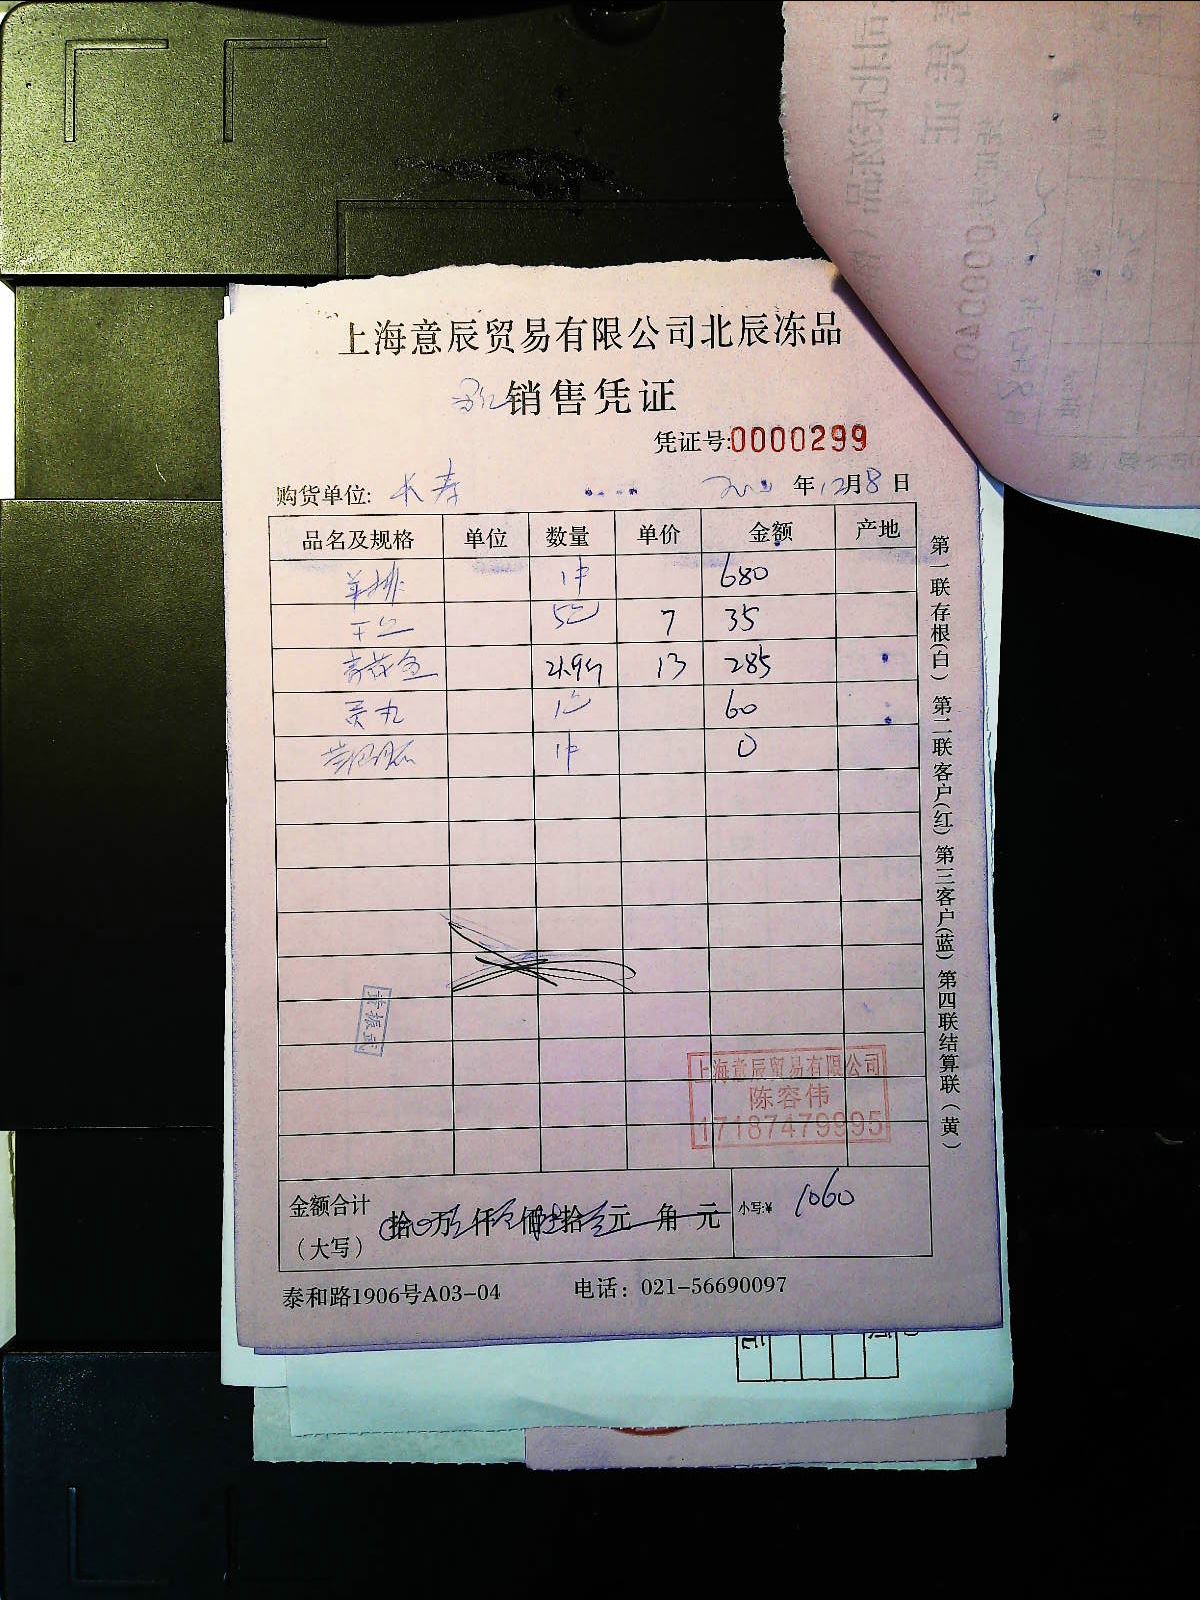 上海意辰贸易有限公司北辰冻品
销售凭证
凭证号:0000299
购货单位: 长寿 年12月8日
品名及规格 单位 数量 单价 金额 产地
羊排 1件 680
5包 7 35
青花鱼 21.9斤 13 285
贡丸 1包 60
1件 0
黄振武
上海意辰贸易有限公司
陈容伟
17187479995
金额合计
(大写) 拾 万 仟 佰 拾 元 角 元 小写:¥ 1060
泰和路1906号A03-04 电话: 021-56690097
第一联存根(白) 第二联客户(红) 第三客户(蓝) 第四联结算联(黄)